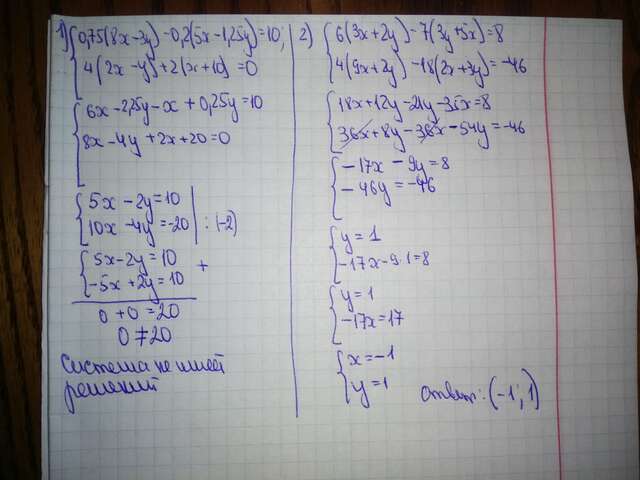 1) 0,75(8x-3y)-0,2(5x-1,25y)=10;
4(2x-y)+2(x+10)=0
6x-2,25y-x+0,25y=10
8x-4y+2x+20=0
5x-2y=10
10x-4y=-20 | :(-2)
5x-2y=10
-5x+2y=10 +
0+0=20
0≠20
Система не имеет
решений
2) 6(3x+2y)-7(3y+5x)=8
4(9x+2y)-18(2x+3y)=-46
18x+12y-21y-35x=8
36x+8y-36x-54y=-46
-17x-9y=8
-46y=-46
y=1
-17x-9·1=8
y=1
-17x=17
x=-1
y=1
Ответ: (-1; 1)